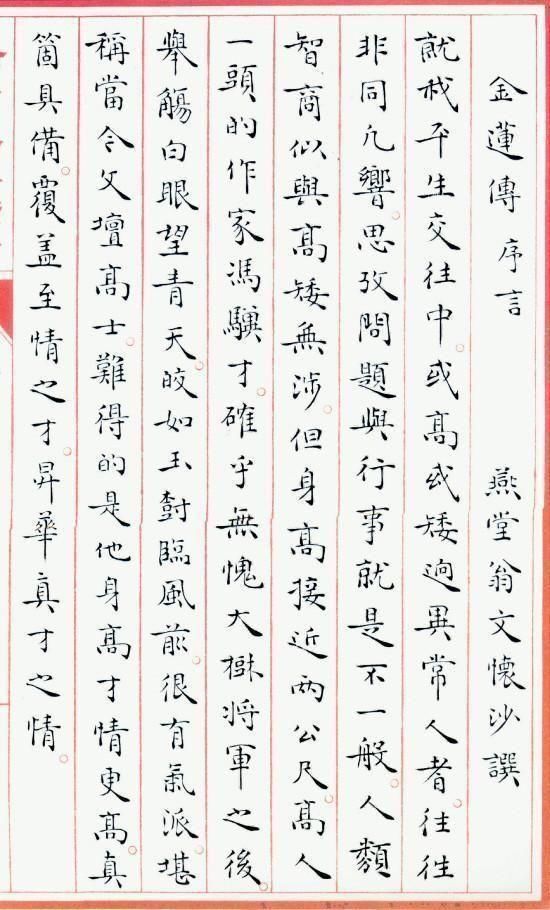 金蓮傳 序言 燕堂翁文懷沙譔
就我平生交往中或高或矮迥異常人者。往往
非同凡響。思攷問題與行事就是不一般。人類
智商似與高矮無涉。但身高接近兩公尺。高人
一頭的作家馮驥才。確乎無愧大樹將軍之後。
舉觴白眼望青天。皎如玉樹臨風前。很有氣派。堪
稱當今文壇高士。難得的是他身高才情更高。真
箇具備覆蓋至情之才。昇華真才之情。